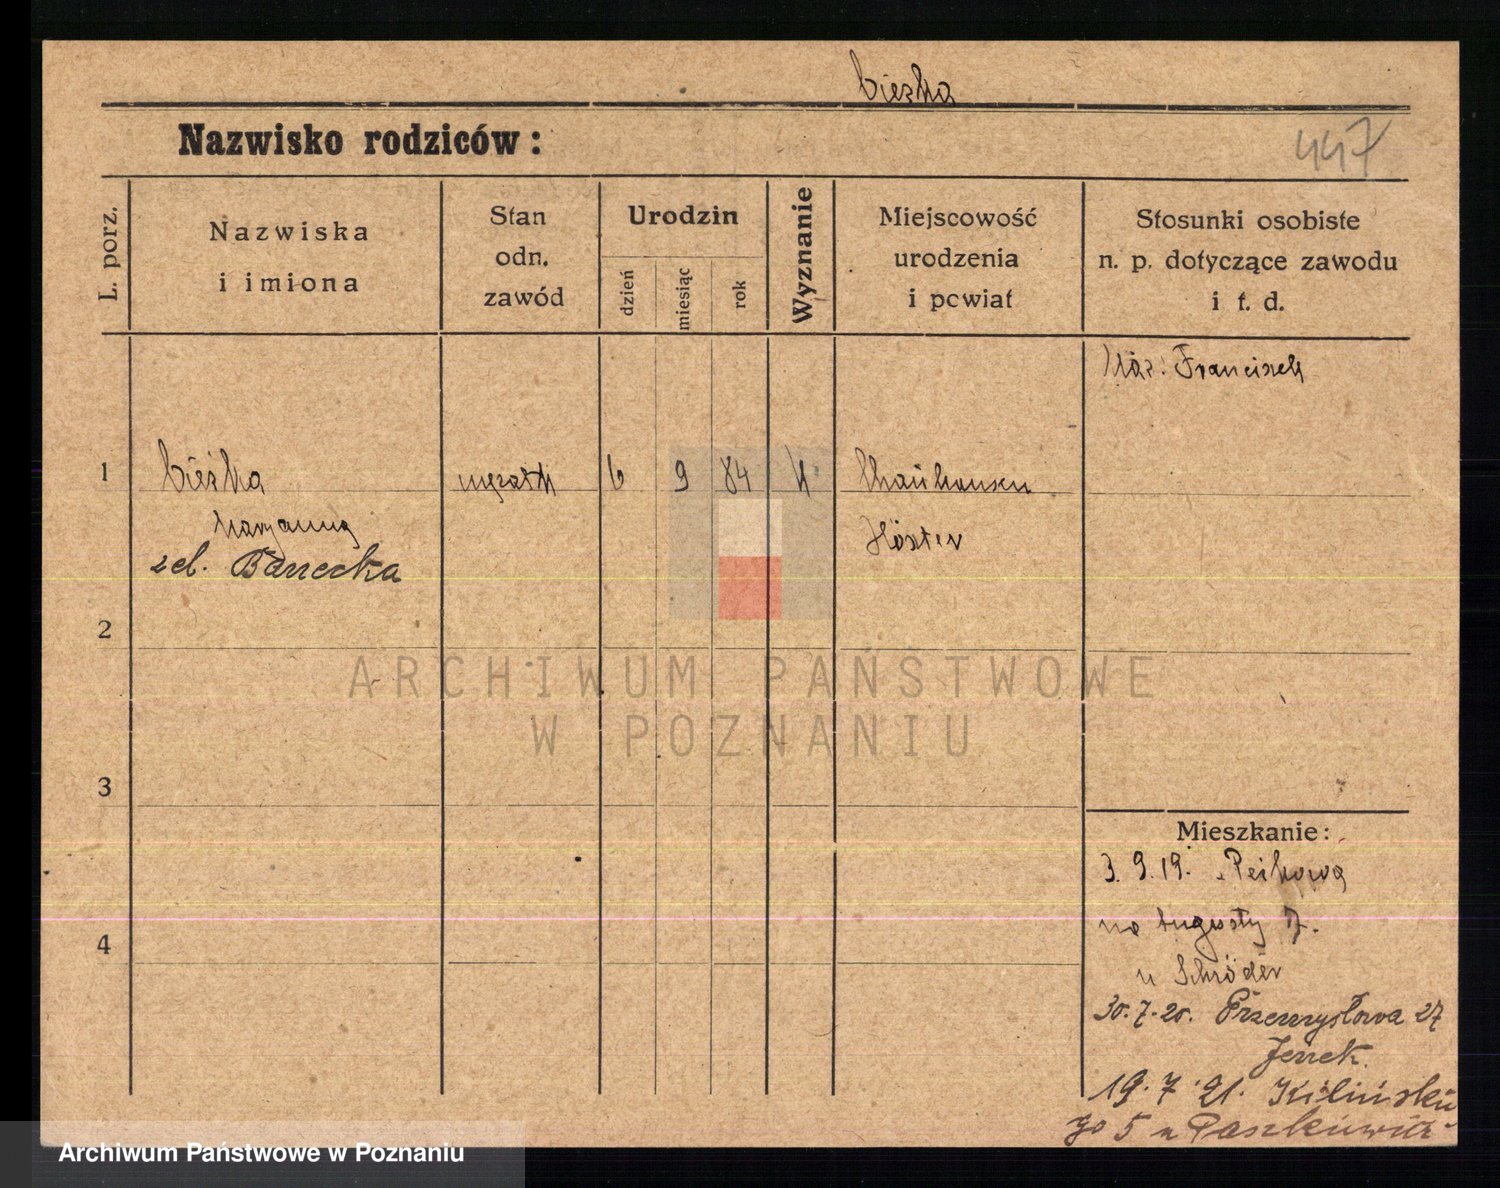 Cieżka
Nazwisko rodziców:
447
L. porz.
Nazwiska
i imiona
Stan
odn.
zawód
Urodzin
dzień
miesiąc
rok
Wyznanie
Miejscowość
urodzenia
i powiat
Stosunki osobiste
n. p. dotyczące zawodu
i t. d.
Mąż: Franciszek
1
Cieżka
6
9
84
K
Maryanna
Höxter
zel. Banecka
2
ARCHIWUM PAŃSTWOWE
W POZNANIU
3
Mieszkanie:
3. 9. 19.
4
na Augusty 7.
u Schröder
30.7.20. Przemysłowa 27
19.7.21. Kilińskie
go 5 u Paszkiewicz
Archiwum Państwowe w Poznaniu